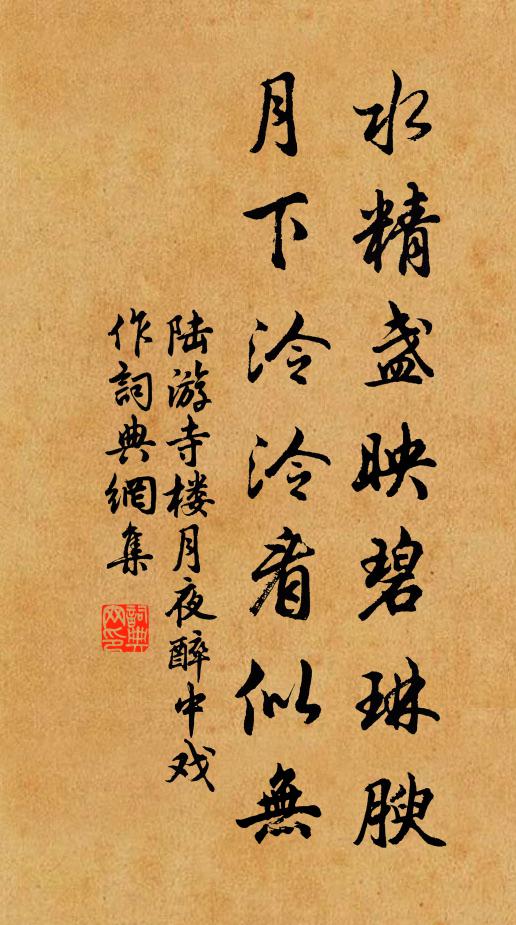 水精盏映碧琳腴
月下泠泠看似無
陆游寺楼月夜醉中戏
作詞典網集
詞典網印